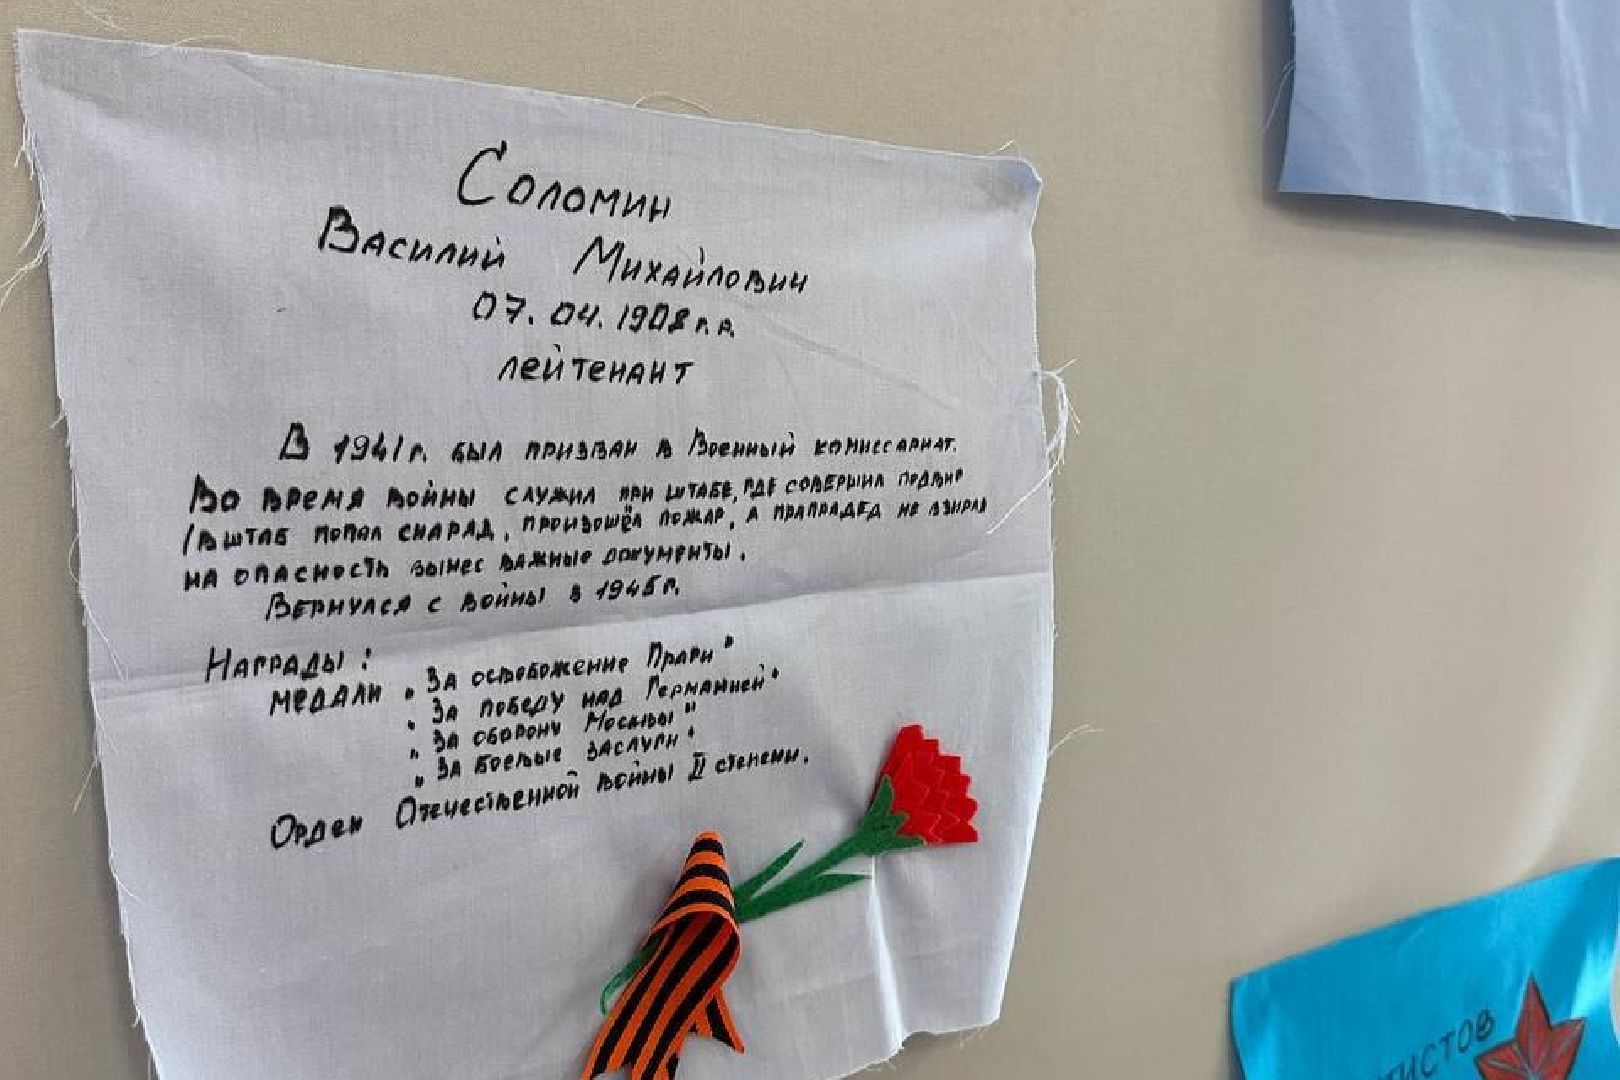 Соломин
Василий Михайлович
07.04.1908 г.р.
лейтенант
В 1941г. был призван в Военный комиссариат.
Во время войны служил при штабе, где совершил подвиг
/в штаб попал снаряд, произошёл пожар, а прапрадед не взирая
на опасность вынес важные документы.
Вернулся с войны в 1945г.
Награды:
медали „За освобождение Праги"
„За победу над Германией"
„За оборону Москвы"
„За боевые заслуги"
Орден Отечественной войны II степени.